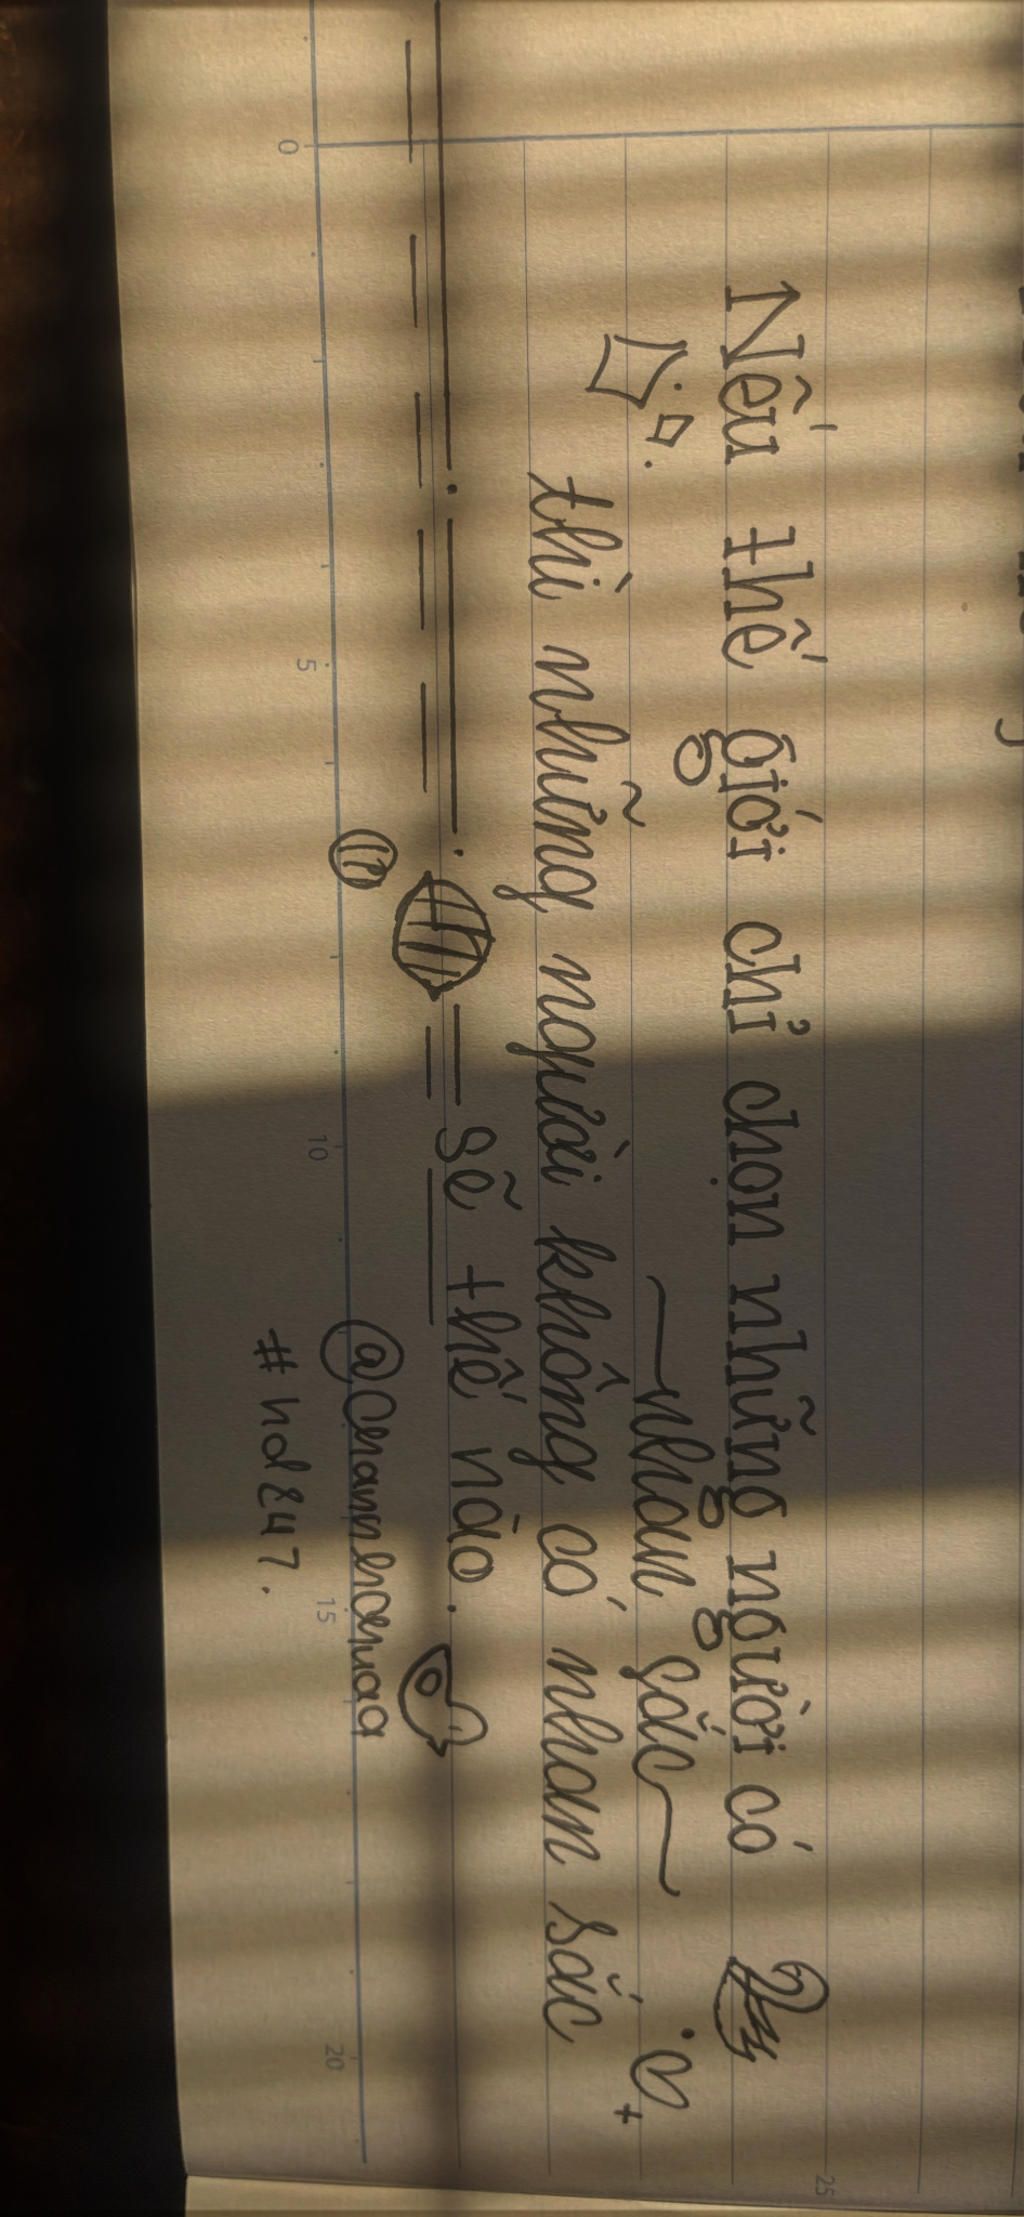 Nếu thế giới chỉ chọn những người có
nhan sắc
thì những người không có nhan sắc
sẽ thế nào.
#hd247.
0
5
10
15
20
25